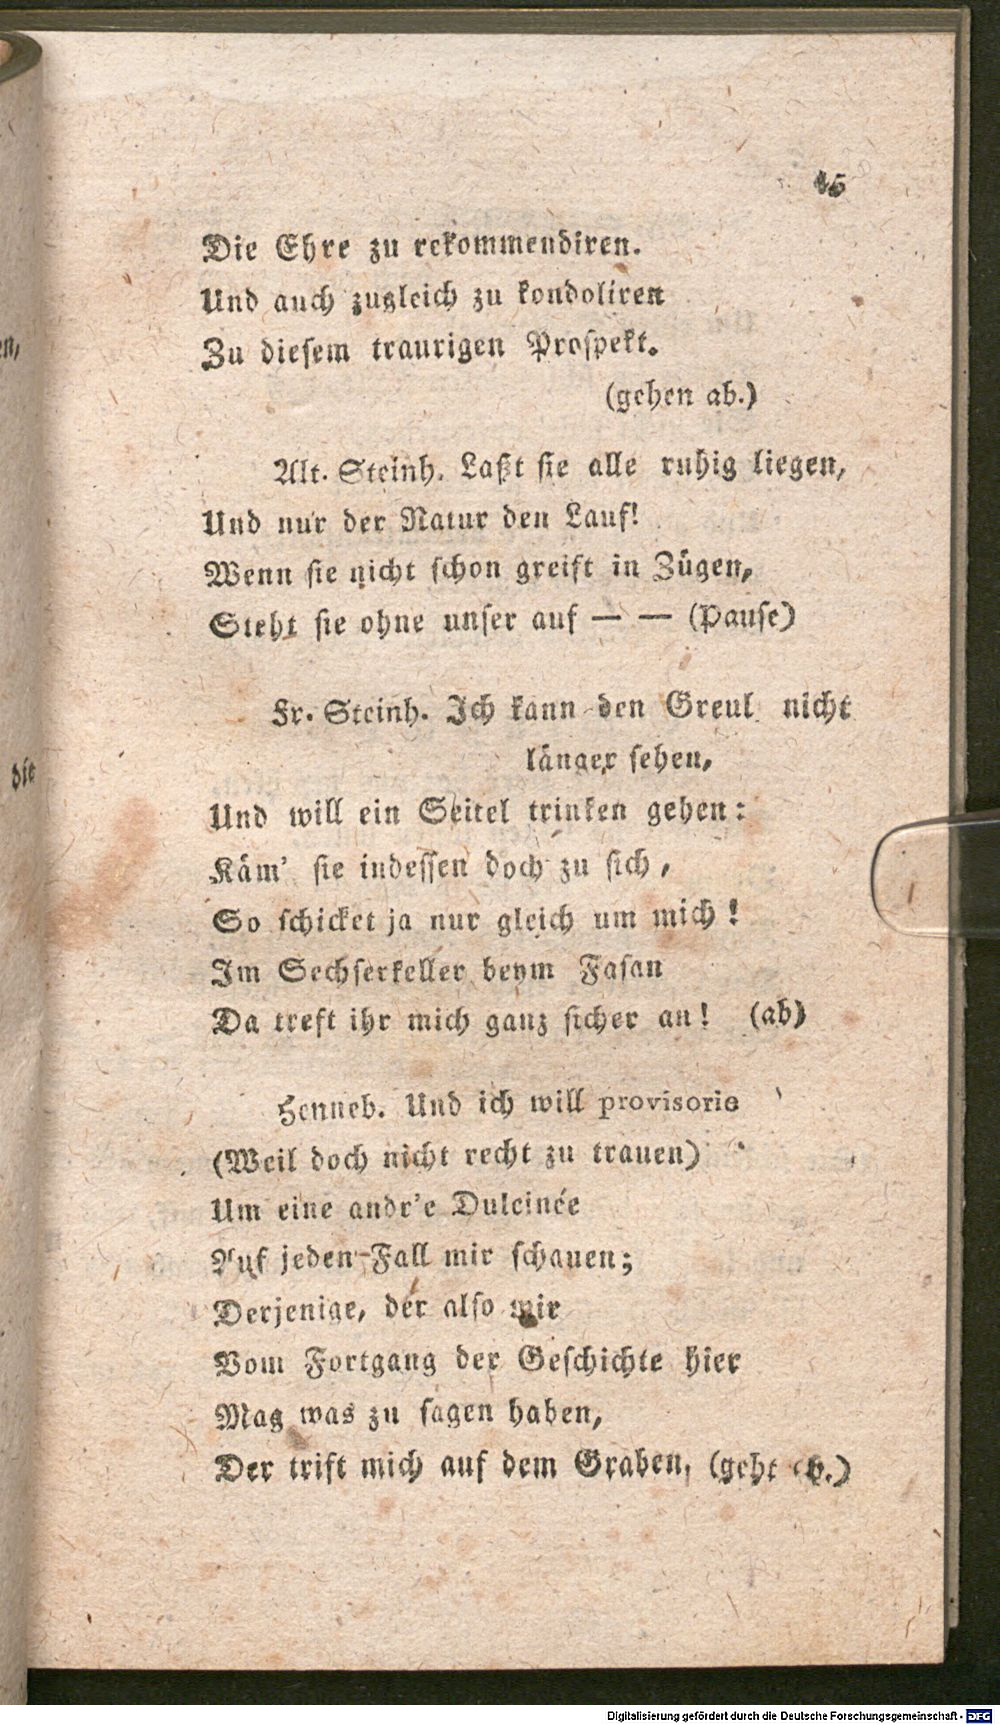 45
Die Ehre zu rekommendiren.
Und auch zugleich zu kondoliren
Zu diesem traurigen Prospekt.
(gehen ab.)
Alt. Steinh. Laßt sie alle ruhig liegen,
Und nur der Natur den Lauf!
Wenn sie nicht schon greift in Zügen,
Steht sie ohne unser auf — — (Pause)
Fr. Steinh. Ich kann den Greul nicht
länger sehen,
Und will ein Seitel trinken gehen:
Käm' sie indessen doch zu sich,
So schicket ja nur gleich um mich!
Im Sechserkeller beym Fasan
Da treft ihr mich ganz sicher an! (ab)
Henneb. Und ich will provisorie
(Weil doch nicht recht zu trauen)
Um eine andr'e Dulcinée
Auf jeden Fall mir schauen;
Derjenige, der also mir
Vom Fortgang der Geschichte hier
Mag was zu sagen haben,
Der trift mich auf dem Graben, (geht ab.)
en,
die
Digitalisierung gefördert durch die Deutsche Forschungsgemeinschaft - DFG